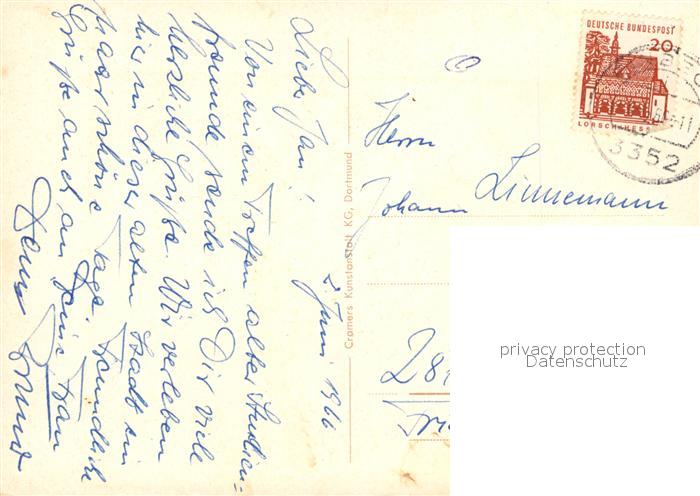 Lieber Jan!
2. Juni 1966
Von einem Treffen alter Studien-
freunde sende ich Dir viele
herzliche Grüße. Wir verleben
hier in dieser alten Stadt ein
paar schöne Tage. Freundliche
Grüße auch an Deine Frau
Dein
Cramers Kunstanstalt KG, Dortmund
DEUTSCHE BUNDESPOST
20
LORSCH/HESS
3352
Herrn
Johann Linnemann
28
privacy protection
Datenschutz